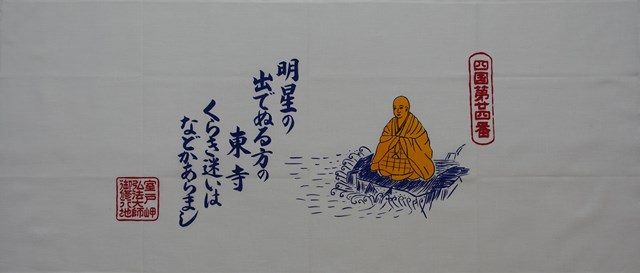 四国第廿四番
明星の
出でぬる方の
東寺
くらき迷いは
などかあらまし
室戸岬
弘法大師
御修行地